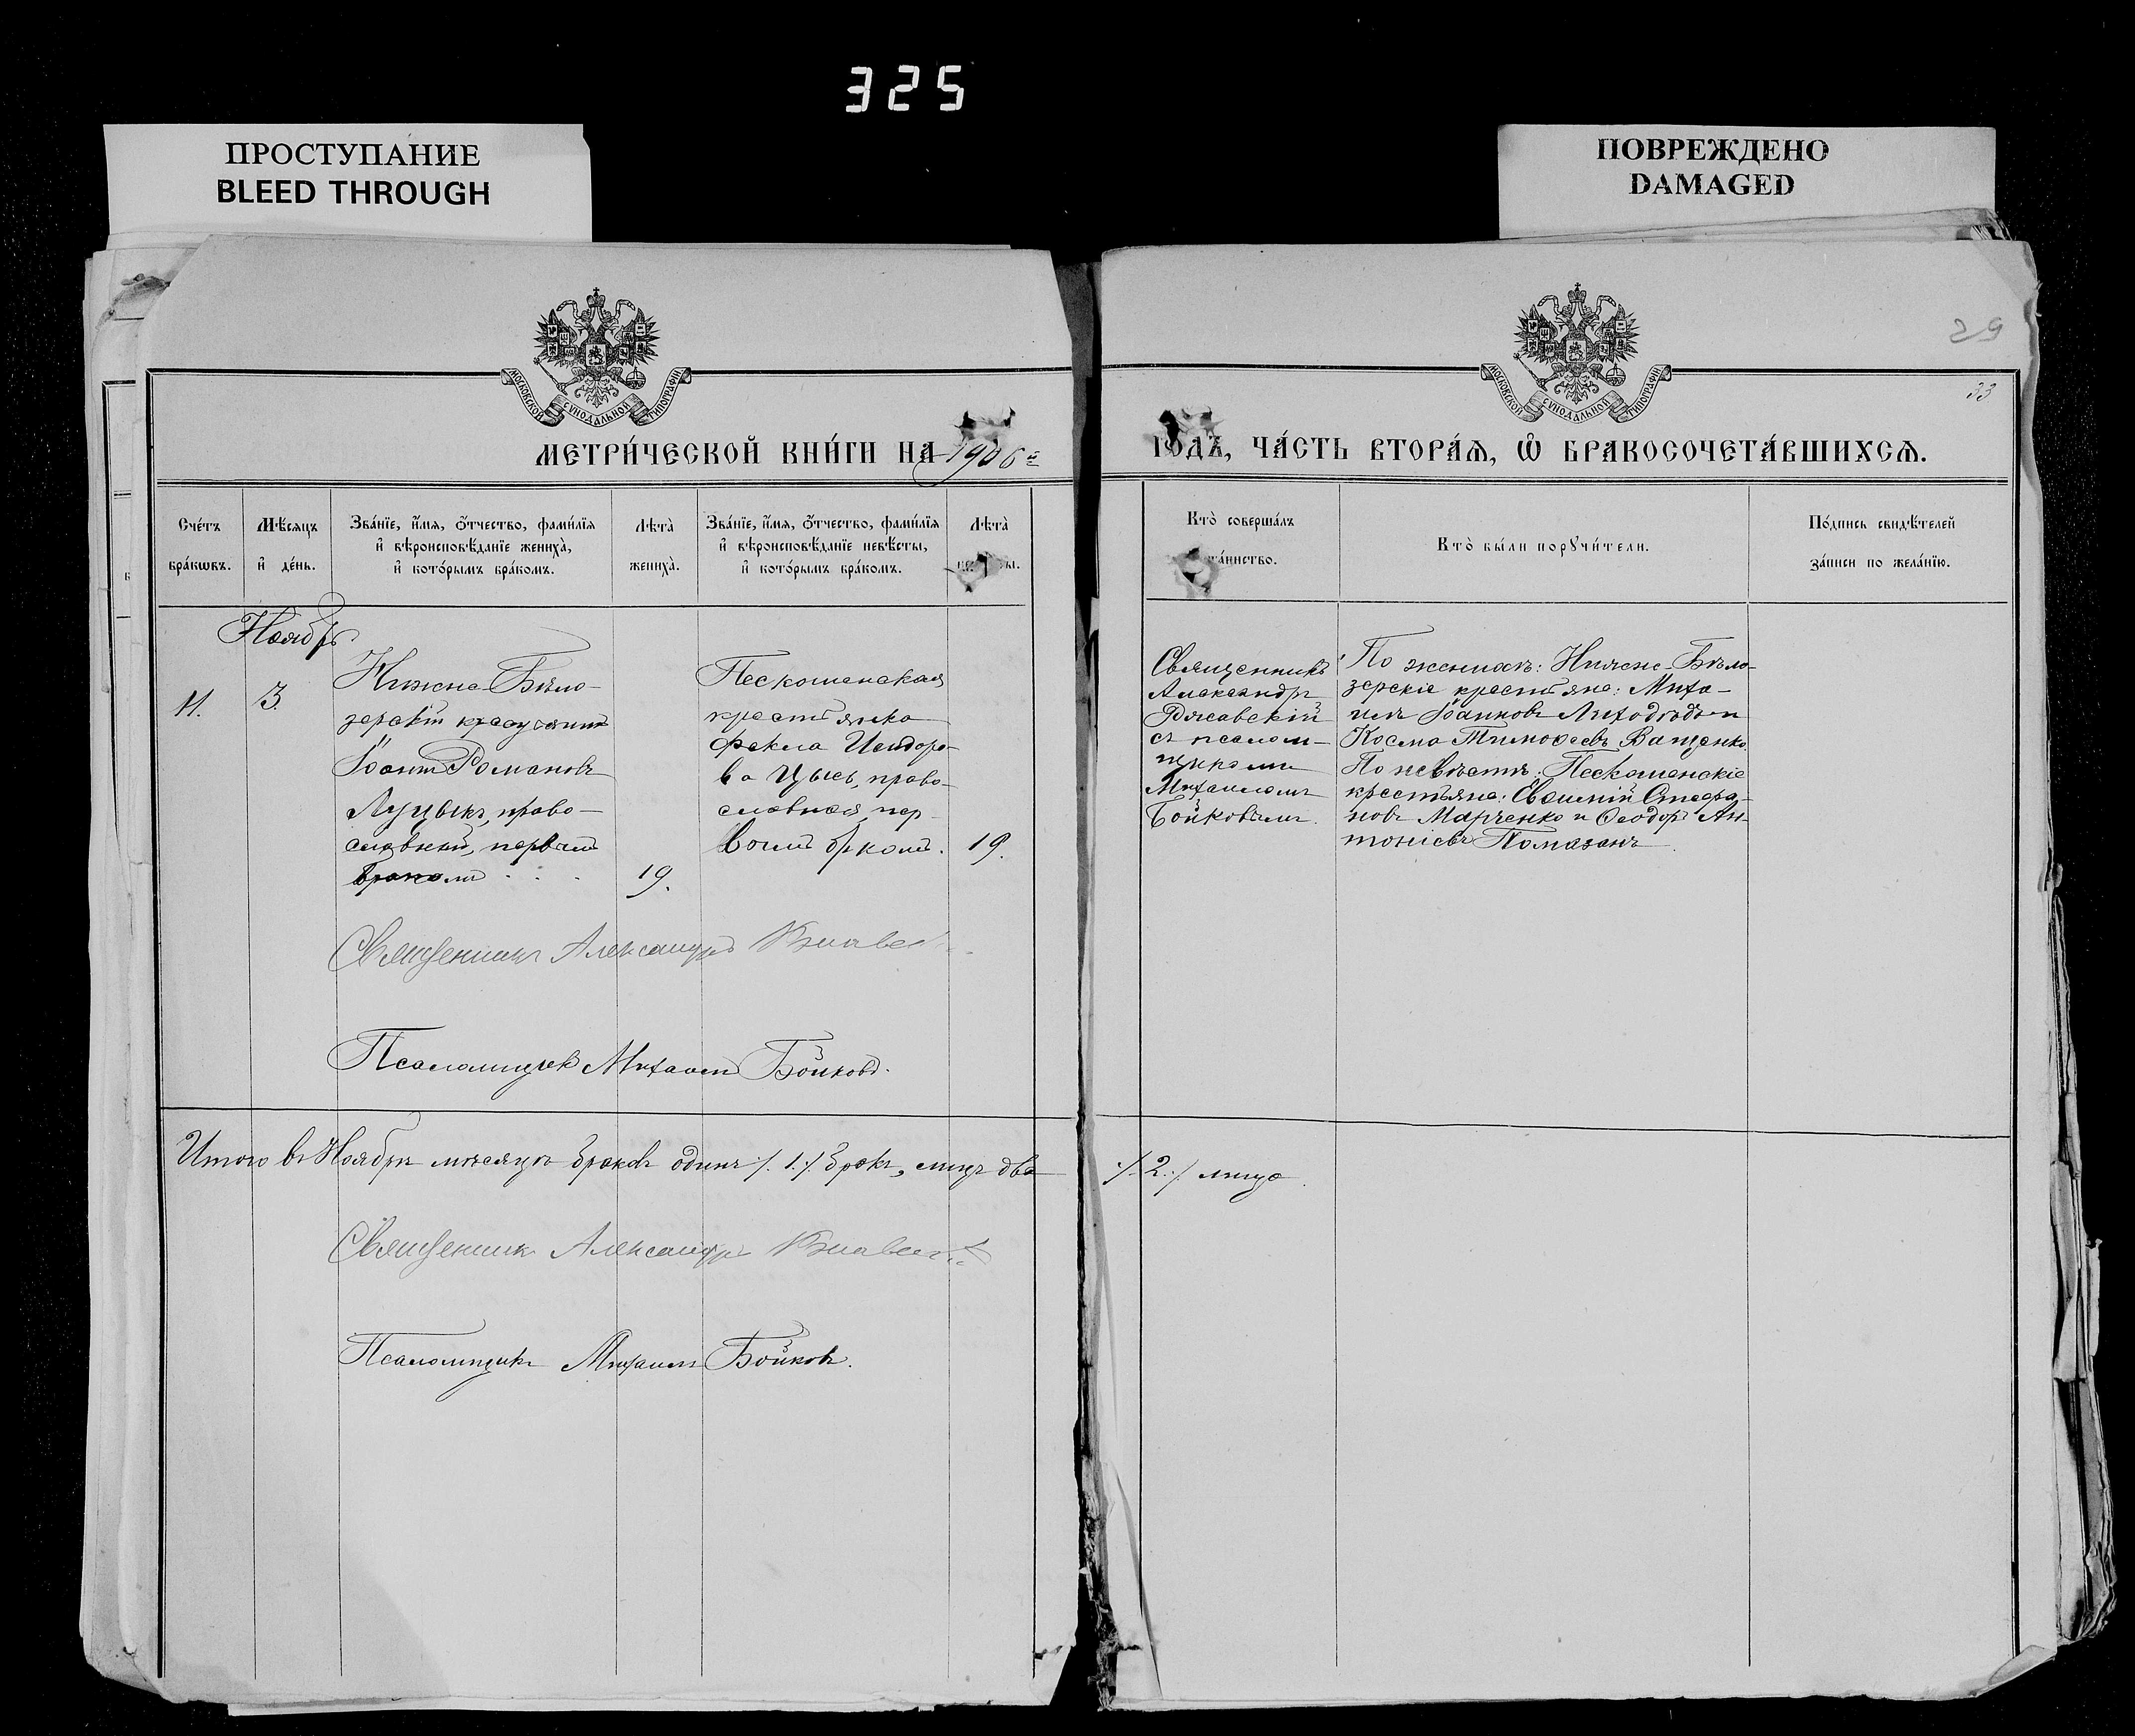 325
ПРОСТУПАНИЕ
BLEED THROUGH
ПОВРЕЖДЕНО
DAMAGED
МОСКОВСКОЙ СѴНОДАЛЬНОЙ ТИПОГРАФІИ
МОСКОВСКОЙ СѴНОДАЛЬНОЙ ТИПОГРАФІИ
29
33
МЕТРИ́ЧЕСКОЙ КНИ́ГИ НА 1906 г
ГОДЪ, ЧА́СТЬ ВТОРА́Ѧ, Ѡ҆ БРАКОСОЧЕТА́ВШИХСѦ.
Сче́тъ
бра́кѡвъ.
Мѣ́сяцъ
и҆ де́нь.
Зва́нїе, и҆́мѧ, ѻ҆́тчество, фами́лїѧ
и҆ вѣроисповѣ́данїе жениха̀,
и҆ кото́рымъ бра́комъ.
Лѣта̀
жениха̀.
Зва́нїе, и҆́мѧ, ѻ҆́тчество, фами́лїѧ
и҆ вѣроисповѣ́данїе невѣ́сты,
и҆ кото́рымъ бра́комъ.
Лѣта̀
Кто̀ соверша́лъ
та́инство.
Кто̀ бы́ли порꙋчи́тели.
По́дпись свидѣ́телей
за́писи по жела́нїю.
Ноябрь
11.
3.
Нижне-Бѣло-
зерскій крестьянинъ
Іоаннъ Романовъ
Луцыкъ, право-
славный, первымъ
бракомъ
19.
Пескошенская
крестьянка
Фекла Исидоро-
ва Цысь, право-
славная, пер-
вымъ бракомъ.
19.
Священникъ
Александръ
с псалом-
щикомъ
Михаиломъ
Бойковымъ.
По женихѣ: Нижне-Бѣло-
зерскіе крестьяне: Миха-
илъ Іоанновъ Лиходѣдъ и
Косма Тимоѳеевъ Ващенко
По невѣстѣ: Пескошенскіе
крестьяне: Стефа-
новъ Марченко и Ѳеодоръ Ан-
тоніевъ Помазанъ
Священникъ Александръ
Псаломщикъ Михаилъ Бойковъ.
Итого въ Ноябрѣ мѣсяцѣ браковъ одинъ /. 1 ./ бракъ, лицъ два
/. 2 ./ лица.
Священникъ Александръ
Псаломщикъ Михаилъ Бойковъ.